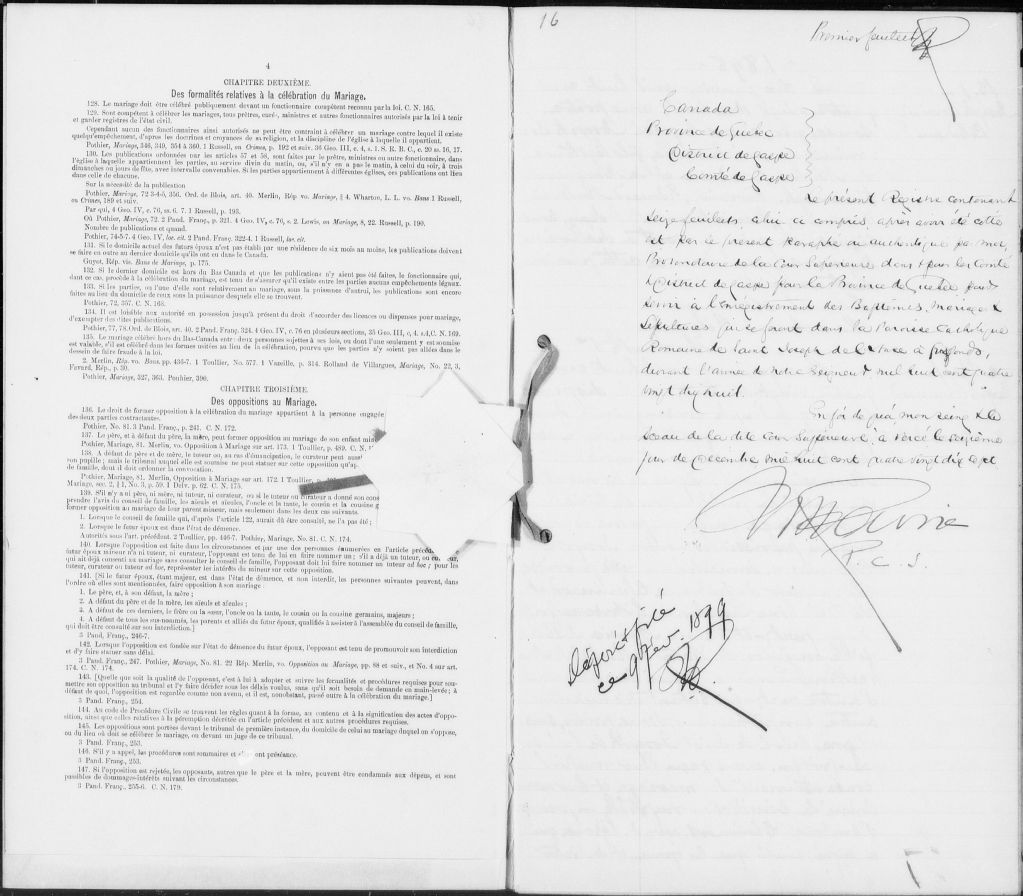 4
CHAPITRE DEUXIÈME.
Des formalités relatives à la célébration du Mariage.
128. Le mariage doit être célébré publiquement devant un fonctionnaire compétent reconnu par la loi. C. N. 165.
129. Sont compétents à célébrer les mariages, tous prêtres, curé-, ministres et autres fonctionnaires autorisés par la loi à tenir
et garder registres de l'état civil.
Cependant aucun des fonctionnaires ainsi autorisés ne peut être contraint à célébrer un mariage contre lequel il existe
quelqu'empêchement, d'après les doctrines et croyances de sa religion, et la discipline de l'église à laquelle il appartient.
Pothier, Mariage, 346, 349, 354 à 360. 1 Russell, on Crimes, p. 192 et suiv. 36 Geo. III, c. 4, s. 1. S. R. B. C., c. 20 ss. 16, 17.
130. Les publications ordonnées par les articles 57 et 58, sont faites par le prêtre, ministre ou autre fonctionnaire, dans
l'église à laquelle appartiennent les parties, au service divin du matin, ou, s'il n'y en a pas le matin, à celui du soir, à trois
dimanches ou jours de fête, avec intervalle convenables. Si les parties appartiennent à différentes églises, ces publications ont lieu
dans celle de chacune.
Sur la nécessité de la publication
Pothier, Mariage, 72 3-4-5, 356. Ord. de Blois, art. 40. Merlin, Rép vo. Mariage, § 4. Wharton, L. L. vo. Bans 1 Russell,
on Crimes, 189 et suiv.
Par qui, 4 Geo. IV, c. 76, ss. 6. 7. 1 Russell, p. 193.
Où Pothier, Mariage, 72. 2 Pand. Franç., p. 321. 4 Geo. IV, c. 76, s. 2. Lewis, on Mariage, 8, 22. Russell, p. 190.
Nombre de publications et quand.
Pothier, 74-5-7. 4 Geo. IV, loc. cit. 2 Pand Franç. 322-4. 1 Russell, loc. cit.
131. Si le domicile actuel des futurs époux n'est pas établi par une résidence de six mois au moins, les publications doivent
se faire en outre au dernier domicile qu'ils ont eu dans le Canada.
Guyot, Rép. vis. Bans de Mariage, p. 175.
132. Si le dernier domicile est hors du Bas-Canada et que les publications n'y aient pas été faites, le fonctionnaire qui,
dans ce cas, procède à la célébration du mariage, est tenu de s'assurer qu'il existe entre les parties aucuns empêchements légaux.
133. Si les parties, ou l'une d'elle sont relativement au mariage, sous la puissance d'autrui, les publications sont encore
faites au lieu du domicile de ceux sous la puissance desquels elle se trouvent.
Pothier, 72, 357. C. N. 168.
134. Il est loisible aux autorité en possession jusqu'à présent du droit d'accorder des licences ou dispenses pour mariage,
d'exempter des dites publications.
Pothier, 77, 78. Ord. de Blois, art. 40. 2 Pand. Franç. 324. 4 Geo. IV, c. 76 en plusieurs sections, 35 Geo. III, c. 4. s.4, C. N. 169.
135. Le mariage célébré hors du Bas-Canada entre deux personnes sujettes à ses lois, ou dont l'une seulement y est soumise
est valable, s'il est célébré dans les formes usitées au lieu de la célébration, pourvu que les parties n'y soient pas allées dans le
dessein de faire fraude à la loi.
2. Merlin, Rép. vo. Bans, pp. 436-7. 1 Toullier, No. 577. 1 Vazeille, p. 314. Rolland de Villargues, Mariage, No. 22, 3,
Favard, Rép., p. 30.
Pothier, Mariage, 327, 363. Pouhier, 390.
CHAPITRE TROISIÈME.
Des oppositions au Mariage.
136. Le droit de former opposition à la célébration du mariage appartient à la personne engagée
des deux parties contractantes.
Pothier, No. 81. 3 Pand Franç., p. 241. C. N. 172.
137. Le père, et à défaut du père, la mère, peut former opposition au mariage de son enfant
Pothier, Mariage, 81. Merlin, vo. Opposition à Mariage sur art. 173. 1 Toullier, p. 489. C. N.
138. A défaut de père et de mère, le tuteur ou, au cas d'émancipation, le curateur peut
son pupille ; mais le tribunal auquel elle est soumise ne peut statuer sur cette opposition
de famille, dont il doit ordonner la convocation.
Pothier, Mariage, 81. Merlin, Opposition à Mariage sur art. 172 1 Toullier,
Mariage, sec. 2, § 1, No. 3, p. 59. 1 Delv. p. 62. C. N. 175.
139. S'il n'y a ni père, ni mère, ni tuteur, ni curateur, ou si le tuteur ou curateur a donné son
prendre l'avis du conseil de famille, les aïeuls et aïeules, l'oncle et la tante, le cousin et la cousine
former opposition au mariage de leur parent mineur, mais seulement dans les deux cas suivants.
1. Lorsque le conseil de famille qui, d'après l'article 122, aurait dû être consulté, ne l'a pas été ;
2. Lorsque le futur époux est dans l'état de démence.
Autorités sous l'art. précédent. 2 Toullier, pp. 446-7. Pothier, Mariage, No. 81. C. N. 174.
140. Lorsque l'opposition est faite dans les circonstances et par une des personnes énumérées en l'article
futur époux mineur n'a ni tuteur, ni curateur, l'opposant est tenu de lui en faire nommer un ; s'il a déjà un tuteur, ou
qui ait déjà consenti au mariage sans consulter le conseil de famille, l'opposant doit lui faire nommer un tuteur ad hoc ; pour les
tuteur, curateur ou tuteur ad hoc, représenter les intérêts du mineur sur cette opposition.
141. [Si le futur époux, étant majeur, est dans l'état de démence, et non interdit, les personnes suivantes peuvent, dans
l'ordre où elles sont mentionnées, faire opposition à son mariage :
1. Le père, et, à son défaut, la mère ;
2. A défaut du père et de la mère, les aïeuls et aïeules ;
3. A défaut de ces derniers, le frère ou la sœur, l'oncle ou la tante, le cousin ou la cousine germains, majeurs ;
4. A défaut de tous les sus-nommés, les parents et alliés du futur époux, qualifiés à assister à l'assemblée du conseil de famille,
qui doit être consulté sur son interdiction.]
3 Pand. Franç., 246-7.
142. Lorsque l'opposition est fondée sur l'état de démence du futur époux, l'opposant est tenu de promouvoir son interdiction
et d'y faire statuer sans délai.
3 Pand. Franç., 247. Pothier, Mariage, No. 81. 22 Rép. Merlin, vo. Opposition au Mariage, pp. 88 et suiv., et No. 4 sur art.
174. C. N. 174.
143. [Quelle que soit la qualité de l'opposant, c'est à lui à adopter et suivre les formalités et procédures requises pour sou-
mettre son opposition au tribunal et l'y faire décider sous les délais voulus, sans qu'il soit besoin de demande en main-levée ; à
défaut de quoi, l'opposition est regardée comme non avenu, et il est, nonobstant, passé outre à la célébration du mariage.]
3 Pand. Franç., 254.
144. Au code de Procédure Civile se trouvent les règles quant à la forme, au contenu et à la signification des actes d'oppo-
sition, ainsi que celles relatives à la péremption décrétée en l'article précédent et aux autres procédures requises.
145. Les oppositions sont portées devant le tribunal de première instance, du domicile de celui au mariage duquel on s'oppose,
ou du lieu où doit se célébrer le mariage, ou devant un juge de ce tribunal.
3 Pand. Franç., 253.
146. S'il y a appel, les procédures sont sommaires et ont préséance.
3 Pand. Franç., 253.
147. Si l'opposition est rejetée, les opposants, autres que le père et la mère, peuvent être condamnés aux dépens, et sont
passibles de dommages-intérêts suivant les circonstances.
3 Pand. Franç., 255-6. C. N. 179.
16
Premier feuillet
Canada
Province de Quebec
District de Gaspé
Comté de Gaspé
Le présent Registre contenant
seize feuillets, celui ci compris, après avoir été cotté
est par le présent Paraphé ou authentiqué par moi,
Protonotaire de la Cour Superieure dans & pour le Comté
& District de Gaspé pour la Province de Quebec pour
servir à l'Enregistrement des Baptêmes, Mariages &
Sépultures qui se feront dans la Paroisse Catholique
Romaine de Saint Joseph de l'Anse à grisfonds,
durant l'année de notre Seigneur mil huit cent quatre
vingt dix huit.
En foi de quoi, mon seing & le
sceau de la dite Cour Superieure, à Percé le seizième
jour de Decembre mil huit cent quatre vingt dix sept
P. C. S.
Déposé & filé
ce 9 fév. 1899